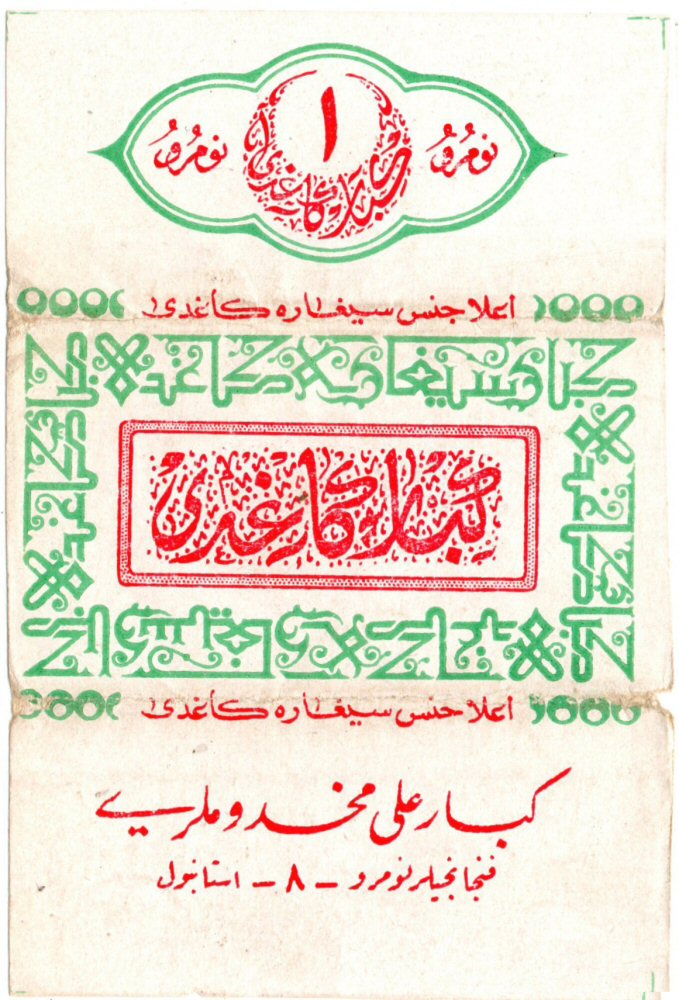 نومرو ١ نومرو
كبار كاغدى
اعلا جنس سيغاره كاغدى
كبار سيغاره كاغدى
كبار كاغدى
اعلا جنس سيغاره كاغدى
كبار على مخدوملرى
فنجانجيلر نومرو – ٨ – استانبول